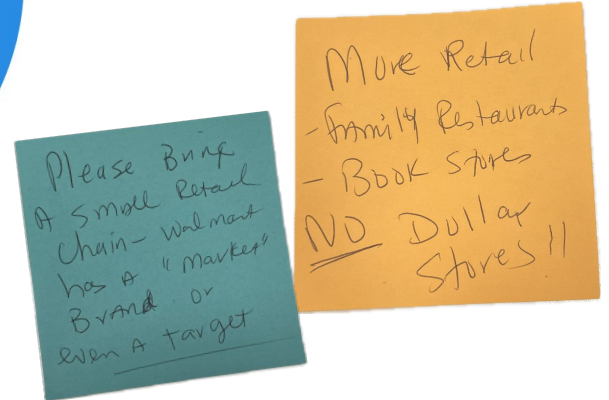 Please Bring
A Small Retail
Chain- Walmart
has A "Market"
Brand or
even A Target
More Retail
- Family Restaurants
- Book Stores
NO Dollar
Stores!!